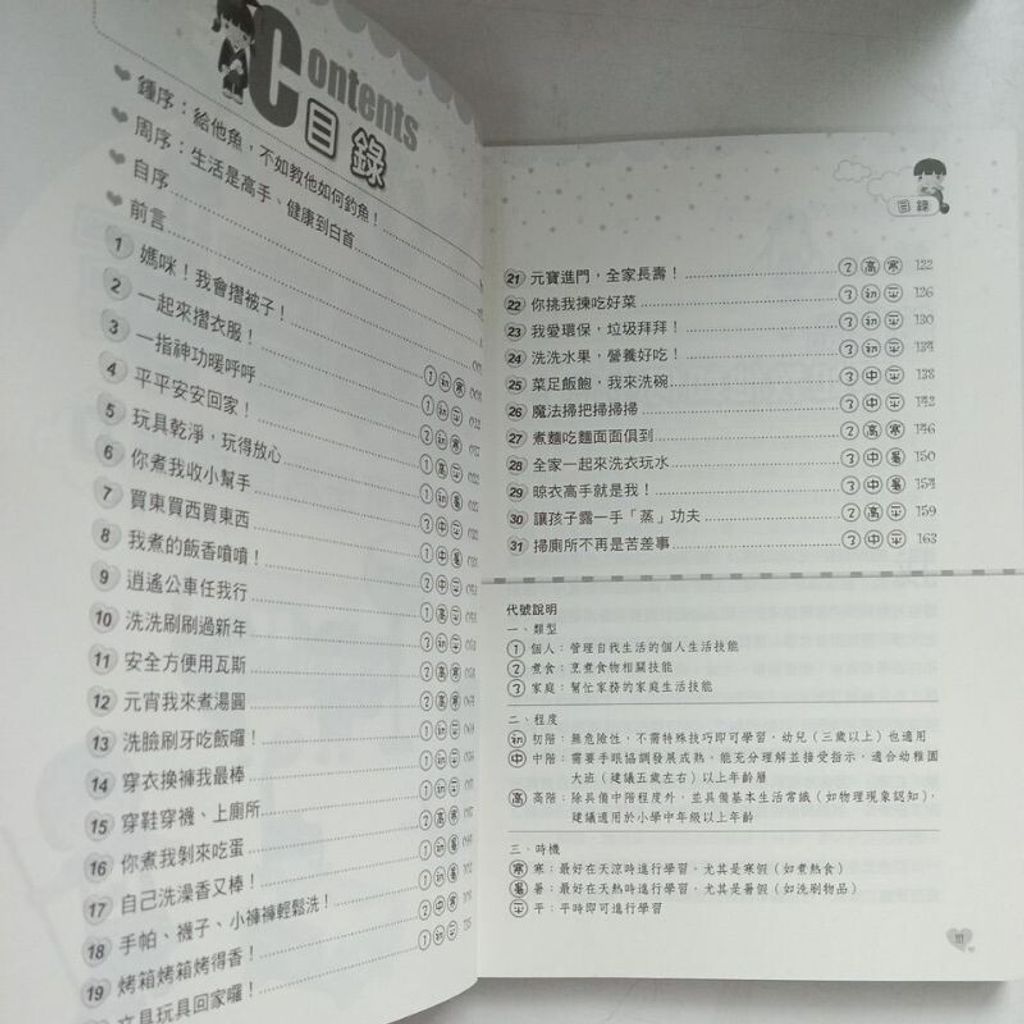 Contents
目錄
鍾序：給他魚，不如教他如何釣魚！
周序：生活是高手、健康到白首
自序
前言
1 媽咪！我會摺被子！ ①初寒
2 一起來摺衣服！ ①初平
3 一指神功暖呼呼 ②初寒
4 平平安安回家！ ①高平
5 玩具乾淨，玩得放心 ①初暑
6 你煮我收小幫手 ②中平
7 買東買西買東西 ①中暑
8 我煮的飯香噴噴！ ②中平
9 逍遙公車任我行 ①高平
10 洗洗刷刷過新年
11 安全方便用瓦斯 ②高寒
12 元宵我來煮湯圓 ②高寒
13 洗臉刷牙吃飯囉！ ①初平
14 穿衣換褲我最棒 ①初平
15 穿鞋穿襪、上廁所 ①初平
16 你煮我剝來吃蛋 ②高寒
17 自己洗澡香又棒！ ①初暑
18 手帕、襪子、小褲褲輕鬆洗！ ①初暑
19 烤箱烤箱烤得香！ ②中寒
文具玩具回家囉！ ①初平
目錄
21 元寶進門，全家長壽！ ②高寒 122
22 你挑我揀吃好菜 ③初平 126
23 我愛環保，垃圾拜拜！ ③初平 130
24 洗洗水果，營養好吃！ ③初平 134
25 菜足飯飽，我來洗碗 ③中平 138
26 魔法掃把掃掃掃 ③中平 142
27 煮麵吃麵面面俱到 ②高寒 146
28 全家一起來洗衣玩水 ③中暑 150
29 晾衣高手就是我！ ③中暑 154
30 讓孩子露一手「蒸」功夫 ②高平 159
31 掃廁所不再是苦差事 ③中平 163
代號說明
一、類型
① 個人：管理自我生活的個人生活技能
② 煮食：烹煮食物相關技能
③ 家庭：幫忙家務的家庭生活技能
二、程度
初 初階：無危險性，不需特殊技巧即可學習，幼兒（三歲以上）也適用
中 中階：需要手眼協調發展成熟，能充分理解並接受指示，適合幼稚園
大班（建議五歲左右）以上年齡層
高 高階：除具備中階程度外，並具備基本生活常識（如物理現象認知），
建議適用於小學中年級以上年齡
三、時機
寒 寒：最好在天涼時進行學習，尤其是寒假（如煮熱食）
暑 暑：最好在天熱時進行學習，尤其是暑假（如洗刷物品）
平 平：平時即可進行學習